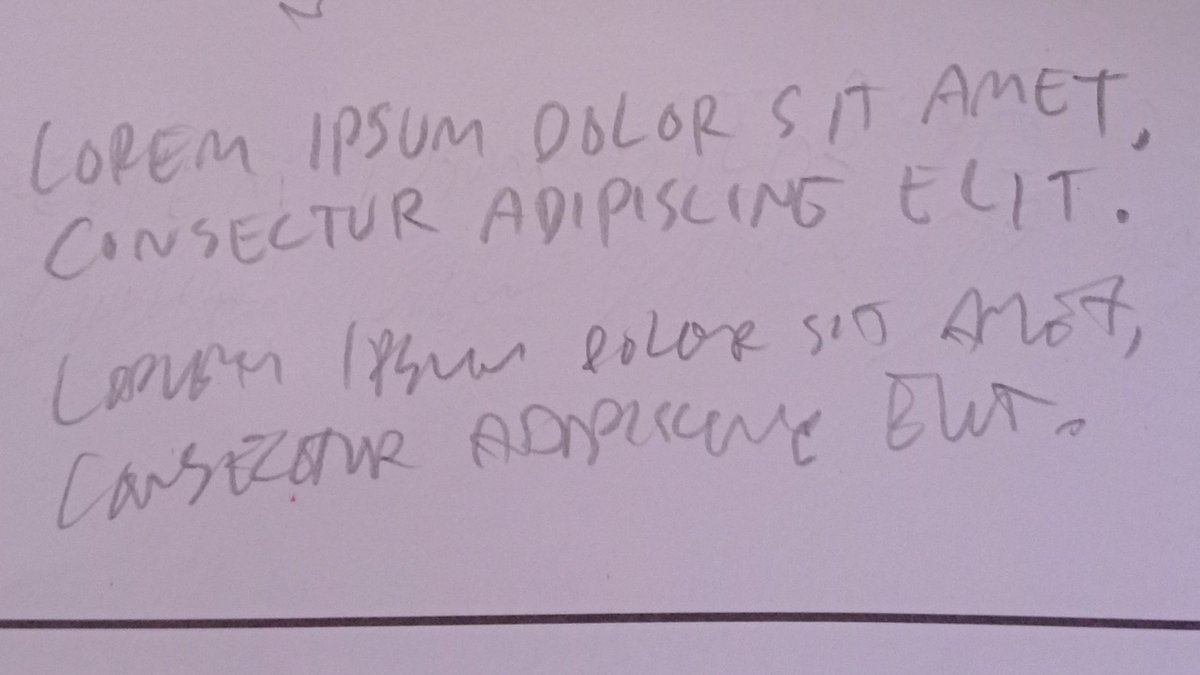 LOREM IPSUM DOLOR SIT AMET,
CONSECTUR ADIPISCING ELIT.
LOREM IPSUM DOLOR SIT AMET,
CONSECTUR ADIPISCING ELIT.